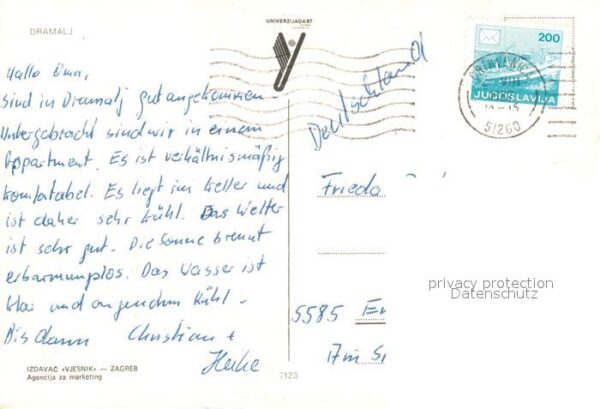 DRAMALJ
UNIVERZIJADA 87
200
JUGOSLAVIJA
51260
Deutschland
Hallo Oma,
Sind in Dramalj gut angekommen.
Untergebracht sind wir in einem
Appartment. Es ist verhältnismäßig
komfortabel. Es liegt im Keller und
ist daher sehr kühl. Das Wetter
ist sehr gut. Die Sonne brennt
erbarmungslos. Das Wasser ist
klar und angenehm kühl -
Bis dann Christian +
Heike
Frieda
privacy protection
Datenschutz
5585 En
Im S
IZDAVAČ »VJESNIK« — ZAGREB
Agencija za marketing
7123